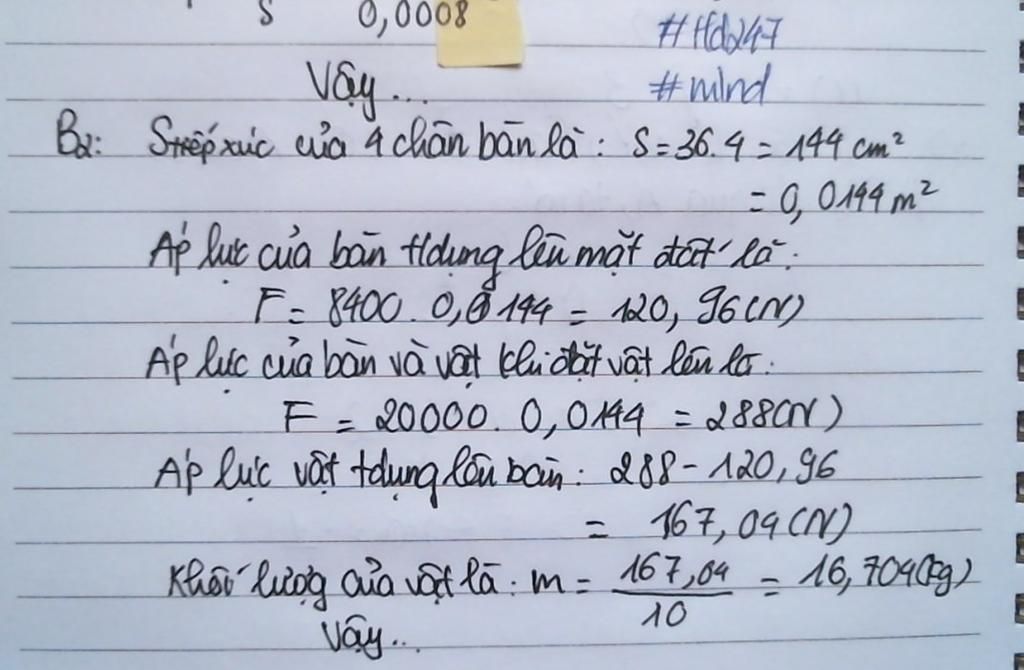 S 0,0008
#Hdz247
#mind
Vậy...
B2: Stiếp xúc của 4 chân bàn là: S=36.4 = 144 cm²
= 0,0144 m²
Áp lực của bàn t/dụng lên mặt đất là:
F = 8400. 0,0144 = 120,96(N)
Áp lực của bàn và vật khi đặt vật lên là:
F = 20000. 0,0144 = 288(N)
Áp lực vật tdụng lên bàn: 288-120,96
= 167,04(N)
Khối lượng của vật là: m = 167,04/10 = 16,704(kg)
Vậy...